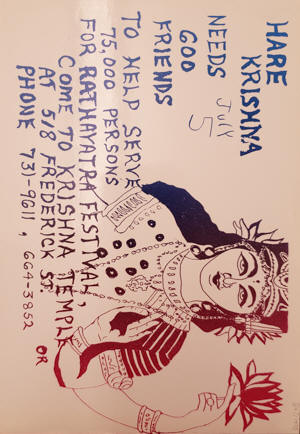 HARE
KRISHNA
July
NEEDS 5
600
FRIENDS
TO HELP SERVE
75,000 PERSONS
FOR RATHAYATRA FESTIVAL,
COME TO KRISHNA TEMPLE
AT 518 FREDERICK ST. OR
PHONE 731-9611, 664-3852